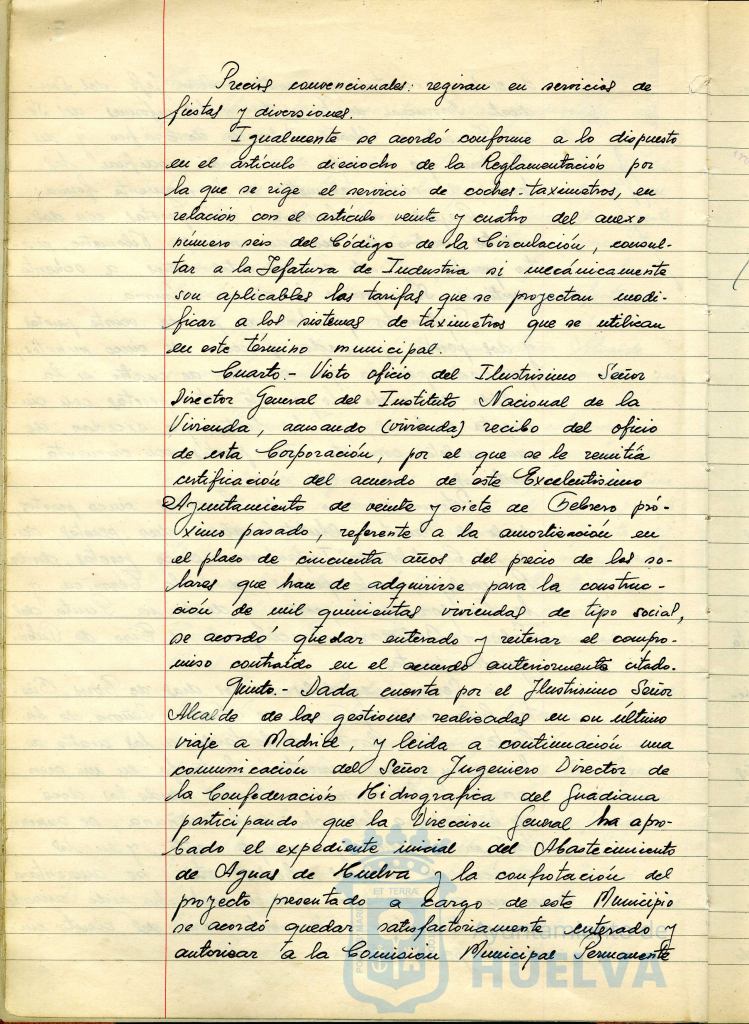 Precios convencionales: regiran en servicios de
fiestas y diversiones.
Igualmente se acordó conforme a lo dispuesto
en el artículo dieciocho de la Reglamentación por
la que se rige el servicio de coches-taximetros, en
relación con el artículo veinte y cuatro del anexo
número seis del Código de la Circulación, consul-
tar a la Jefatura de Industria si mecánicamente
son aplicables las tarifas que se projectan modi-
ficar a los sistemas de taximetros que se utilican
en este término municipal.
Cuarto.- Visto oficio del Ilustrisimo Señor
Director General del Instituto Nacional de la
Vivienda, acusando (vivienda) recibo del oficio
de esta Corporación, por el que se le remitía
certificación del acuerdo de este Excelentisimo
Ayuntamiento de veinte y siete de Febrero pró-
ximo pasado, referente a la amortización en
el plazo de cincuenta años del precio de los so-
lares que han de adquirirse para la construc-
ción de mil quinientas viviendas de tipo social,
se acordó quedar enterado y reiterar el compro-
miso contraído en el acuerdo anteriormente citado.
Quinto.- Dada cuenta por el Ilustrisimo Señor
Alcalde de las gestiones realizadas en su último
viaje a Madrid, y leida a continuación una
comunicación del Señor Ingeniero Director de
la Confederación Hidrografica del Guadiana
participando que la Direccion General ha apro-
bado el expediente inicial del Abastecimiento
de Aguas de Huelva y la confrotación del
proyecto presentado a cargo de este Municipio
se acordó quedar satisfactoriamente enterado y
autorizar a la Comision Municipal Permanente
Ayuntamiento de
HUELVA